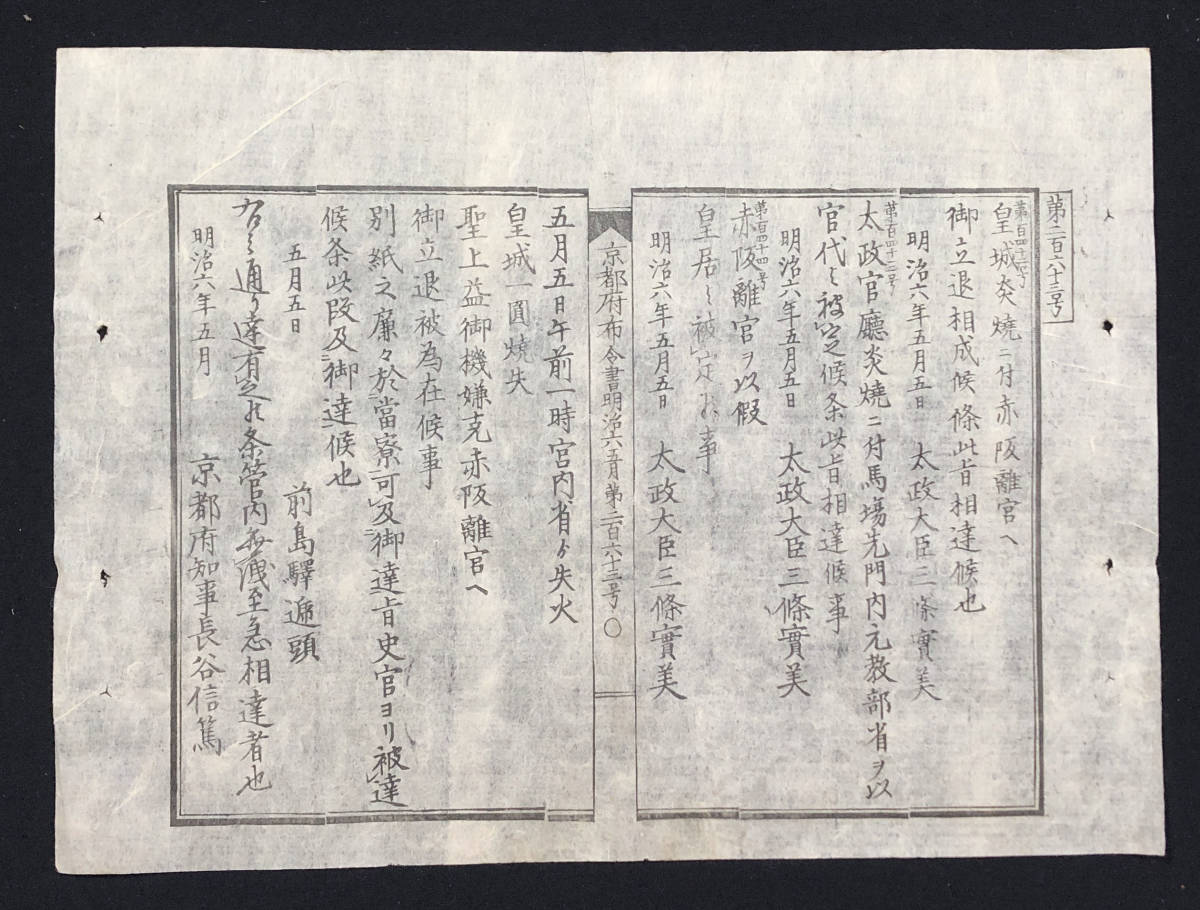 第二百六十三号
第百四十二号
皇城炎燒ニ付赤阪離宮ヘ
御立退相成候條此旨相達候也
明治六年五月五日　太政大臣三條實美
第百四十三号
太政官廳炎燒ニ付馬場先門内元教部省ヲ以
官代ニ被定候条此旨相達候事
明治六年五月五日　太政大臣三條實美
第百四十四号
赤阪離宮ヲ以假
皇居ニ被定候事
明治六年五月五日　太政大臣三條實美
京都府布令書明治六五月第二百六十三号〇
五月五日午前一時宮内省ゟ失火
皇城一圓燒失
聖上益御機嫌克赤阪離宮ヘ
御立退被為在候事
別紙之廉々於當寮可及御達旨史官ヨリ被達
候条此段及御達候也
五月五日　前島驛遞頭
右之通り達有之候条管内無洩至急相達者也
明治六年五月　京都府知事長谷信篤